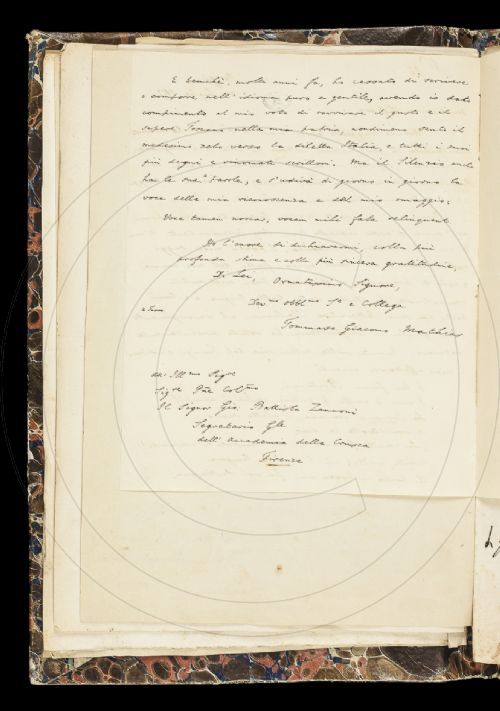 E benchè, molti anni fa, ho cessato di scrivere
e comporre nell' idioma puro e gentile, avendo io dato
compimento al mio voto di ravvivare il gusto e il
sapere Toscano nella mia patria, nondimeno sento il
medesimo zelo verso la diletta Italia, e tutti i suoi
più degni e rinomati scrittori. Ma il Silenzio anche
ha le sue Parole, e s'udirà di giorno in giorno la
voce della mia riconoscenza e del mio omaggio:
Voce tamen nostra, vocem mihi fata relinquent
Ho l'onore di dichiararmi, colla più
profonda stima e colla più sincera gratitudine,
Di Lei, Ornatissimo Signore,
Dev.mo obbl.mo S.e e Collega
Tommaso Giacomo Mathias
All' Ill.mo Sig.re
Sig.re P̃ne Col.mo
Il Signor Gio. Battista Zannoni
Segretario G.le
dell' Accademia della Crusca
Firenze